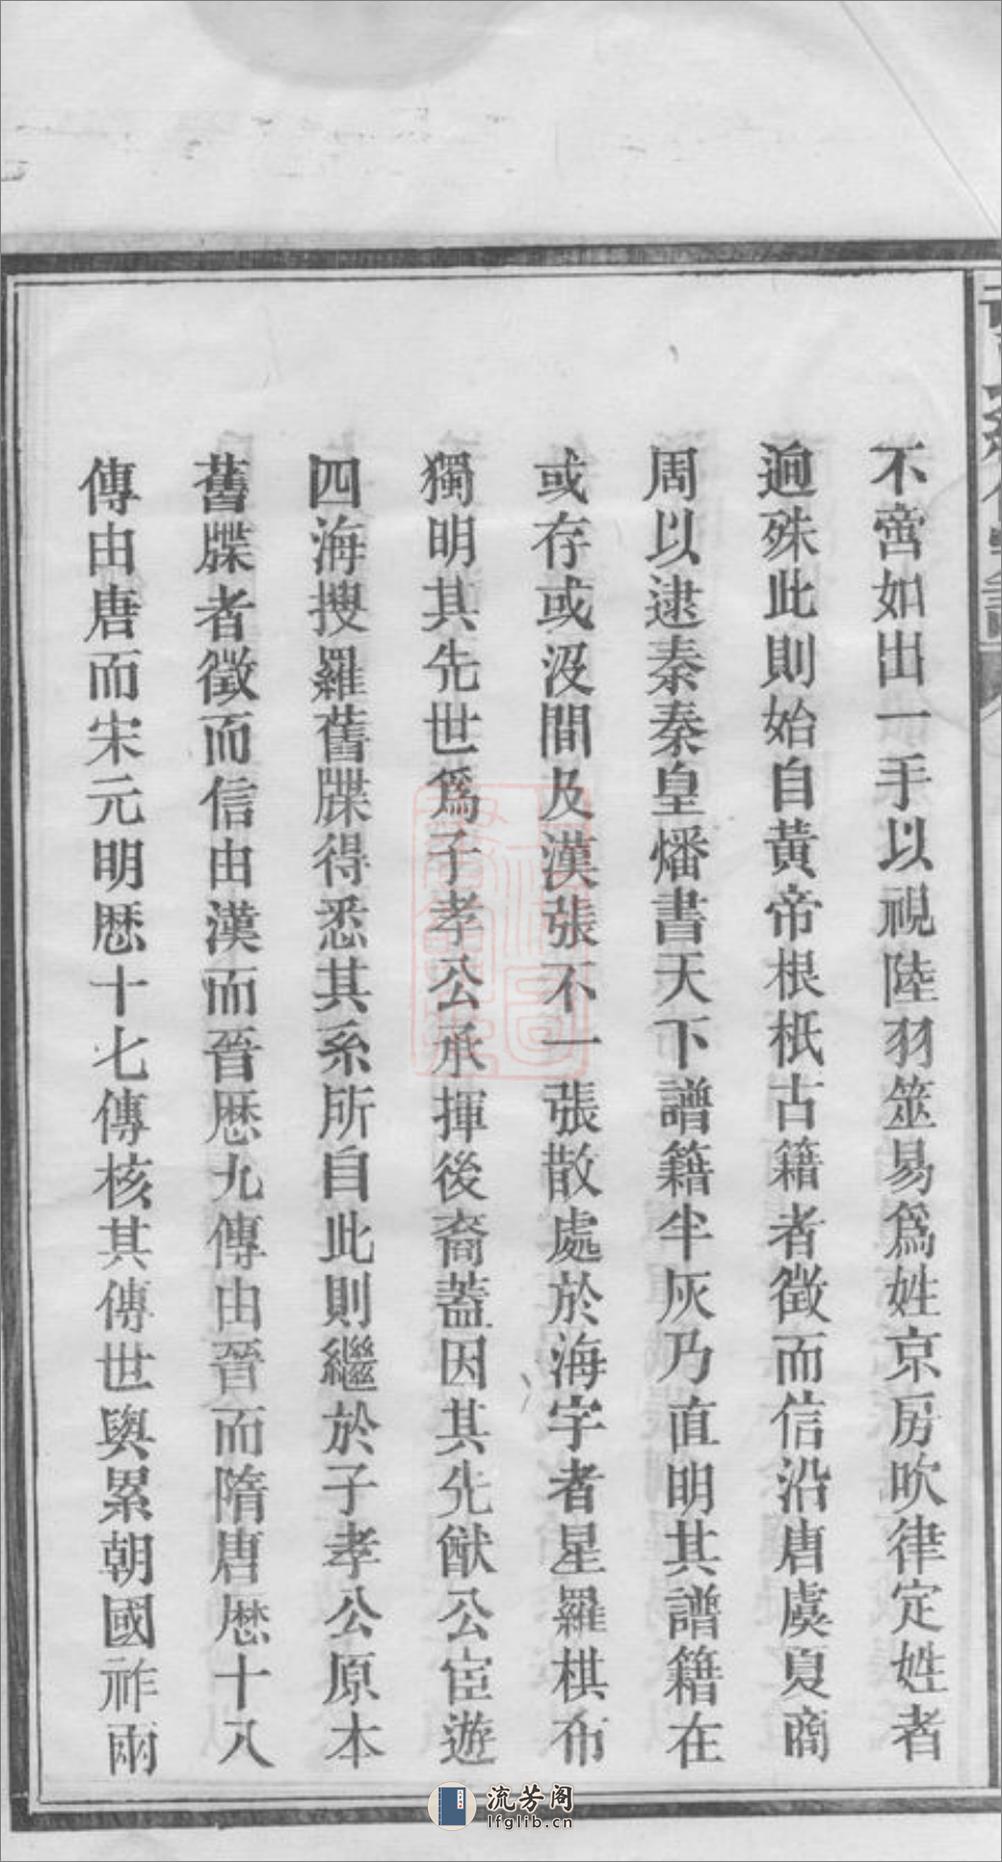 不啻如出一手以視陸羽筮易爲姓京房吹律定姓者
逈殊此則始自黃帝根柢古籍者徵而信沿唐虞夏商
周以逮秦秦皇燔書天下譜籍半灰乃直明其譜籍在
或存或没間及漢張不一張散處於海宇者星羅棋布
獨明其先世爲子孝公承揮後裔蓋因其先猷公宦遊
四海搜羅舊牒得悉其系所自此則繼於子孝公原本
舊牒者徵而信由漢而晉厯九傳由晉而隋唐厯十八
傳由唐而宋元明厯十七傳核其傳世與累朝國祚兩
流芳阁
lfglib.cn